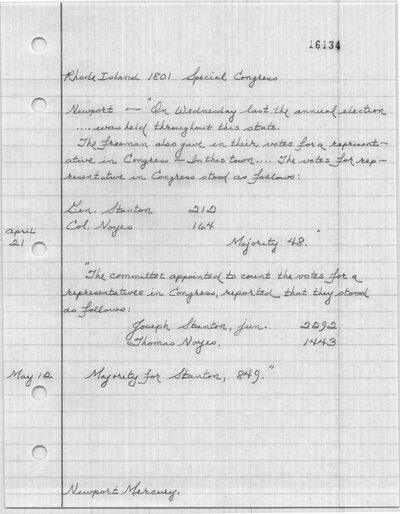 16134
Rhode Island 1801 Special Congress
Newport — "On Wednesday last the annual election
.... was held throughout this state.
The freeman also gave in their votes for a represent-
ative in Congress — In this town .... The votes for rep-
resentative in Congress stood as follows:
Gen. Stanton 212
Col. Noyes 164
Majority 48."
April
21
"The committee appointed to count the votes for a
representatives in Congress, reported that they stood
as follows:
Joseph Stanton, jun. 2292
Thomas Noyes, 1443
May 12 Majority for Stanton, 849."
Newport Mercury.